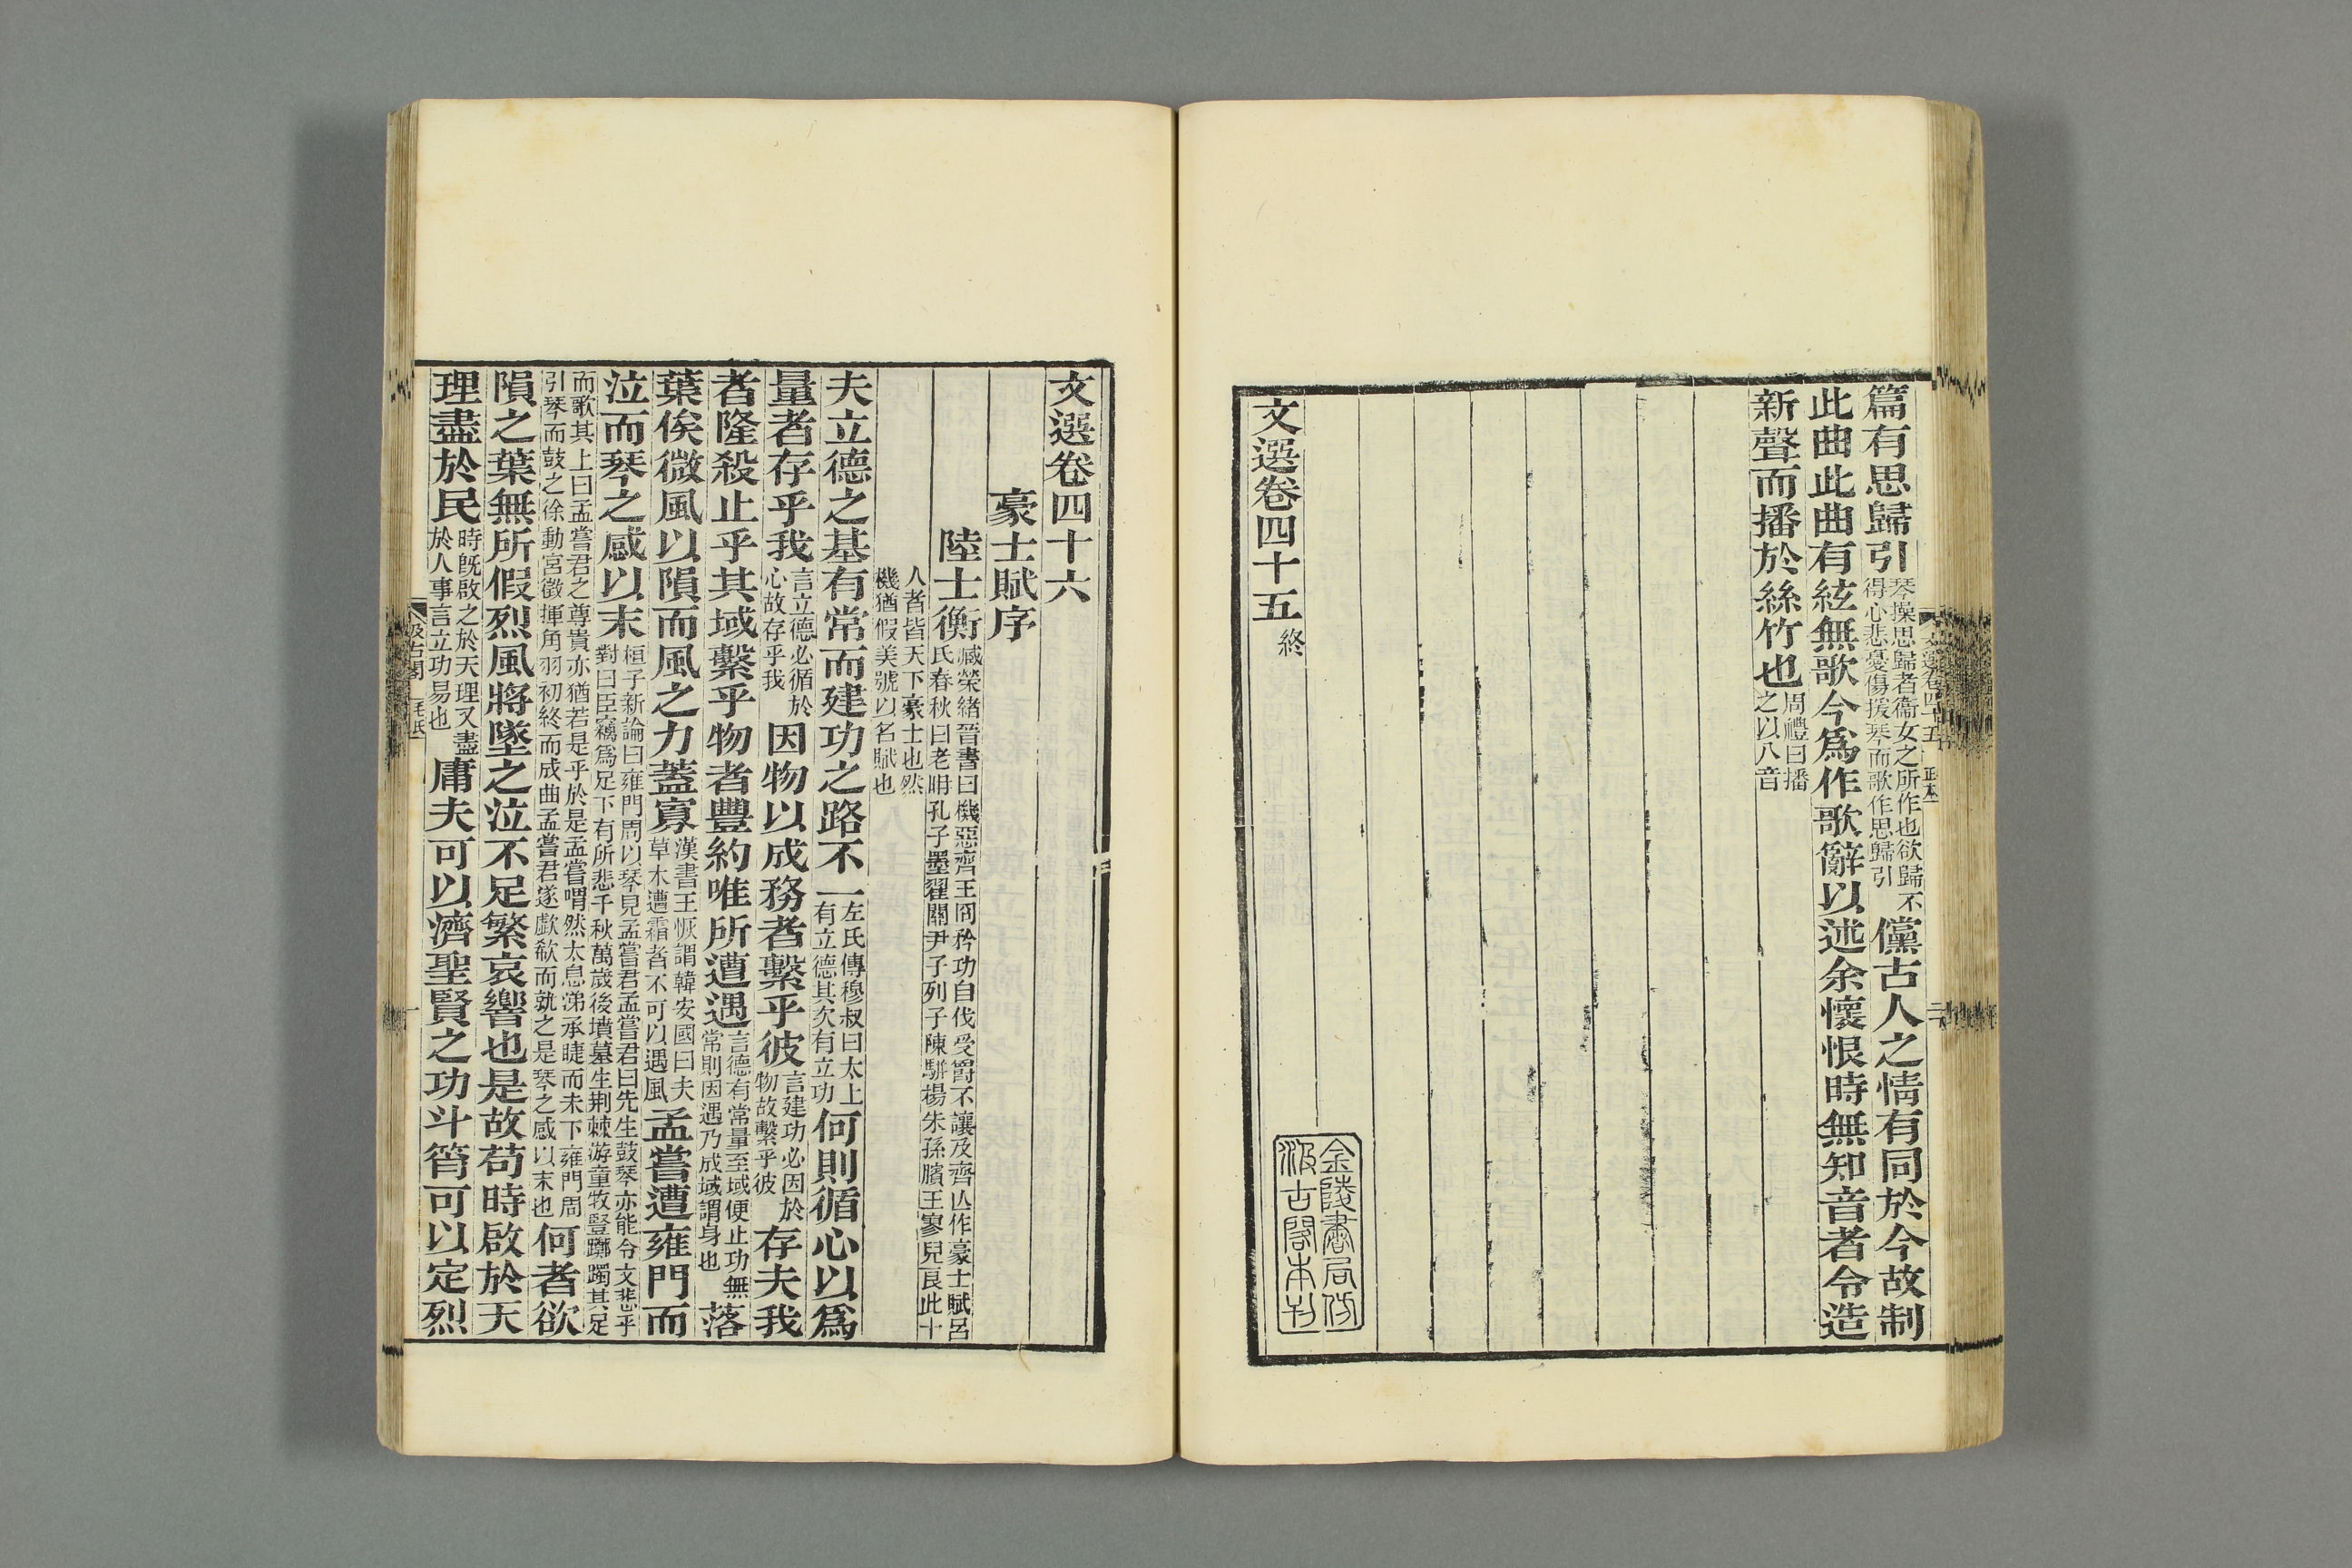 篇有思歸引琴操思歸者衞女之所作也欲歸不得心悲憂傷援琴而歌作思歸引儻古人之情有同於今故制
此曲此曲有絃無歌今爲作歌辭以述余懷恨時無知音者令造
新聲而播於絲竹也周禮曰播之以八音
文選卷四十五終
金陵書局仿
汲古閣本刊
文選卷四十六
豪士賦序
陸士衡臧榮緒晉書曰機惡齊王冏矜功自伐受爵不讓及齊亾作豪士賦呂氏春秋曰老耼孔子墨翟關尹子列子陳駢楊朱孫臏王寥兒良此十
人者皆天下豪士也然機猶假美號以名賦也
夫立德之基有常而建功之路不一左氏傳穆叔曰太上有立德其次有立功何則循心以爲
量者存乎我言立德必循於心故存乎我因物以成務者繫乎彼言建功必因於物故繫乎彼存夫我
者隆殺止乎其域繫乎物者豐約唯所遭遇言德有常量至域便止功無常則因遇乃成域謂身也落
葉俟微風以隕而風之力蓋寡漢書王恢謂韓安國曰夫草木遭霜者不可以遇風孟嘗遭雍門而
泣而琴之感以末桓子新論曰雍門周以琴見孟嘗君孟嘗君曰先生鼓琴亦能令文悲乎對曰臣竊爲足下有所悲千秋萬歲後墳墓生荆棘游童牧豎躑躅其足
而歌其上曰孟嘗君之尊貴亦猶若是乎於是孟嘗喟然太息涕承睫而未下雍門周引琴而鼓之徐動宮徵揮角羽初終而成曲孟嘗君遂歔欷而就之是琴之感以末也何者欲
隕之葉無所假烈風將墜之泣不足繁哀響也是故苟時啟於天
理盡於民時旣啟之於天理又盡於人事言立功易也庸夫可以濟聖賢之功斗筲可以定烈